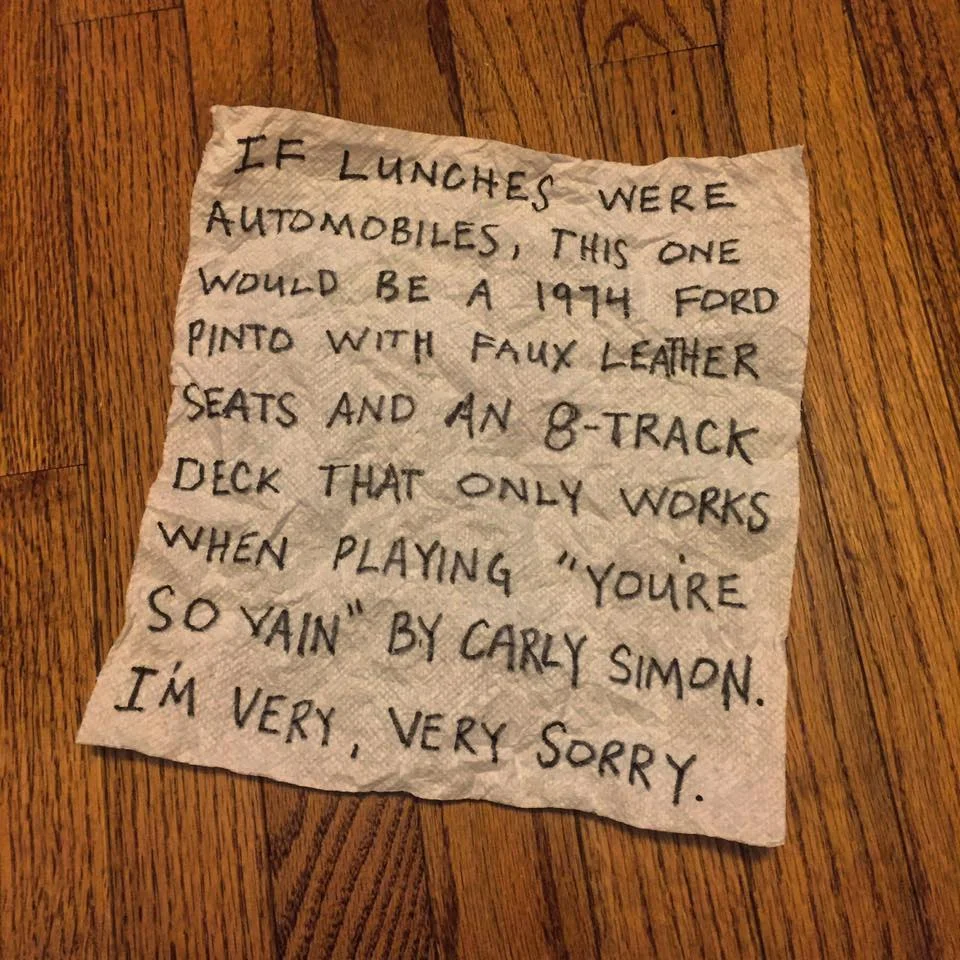 IF LUNCHES WERE
AUTOMOBILES, THIS ONE
WOULD BE A 1974 FORD
PINTO WITH FAUX LEATHER
SEATS AND AN 8-TRACK
DECK THAT ONLY WORKS
WHEN PLAYING "YOU'RE
SO VAIN" BY CARLY SIMON.
I'M VERY, VERY SORRY.